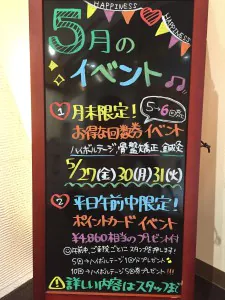 HAPPINESS
HAPPINESS
5月の
イベント
1 月末限定! 5→6回券
お得な回数券イベント
ハイボルテージ、骨盤矯正、鍼灸
5/27(金)30(月)31(火)
2 平日午前中限定!
ポイントカードイベント
¥4,860相当のプレゼント付
午前中、ご来院ごとにスタンプを押します!
5回→ハイボルテージ1回分プレゼント
10回→ハイボルテージ5回券プレゼント!!!
詳しい内容はスタッフまで